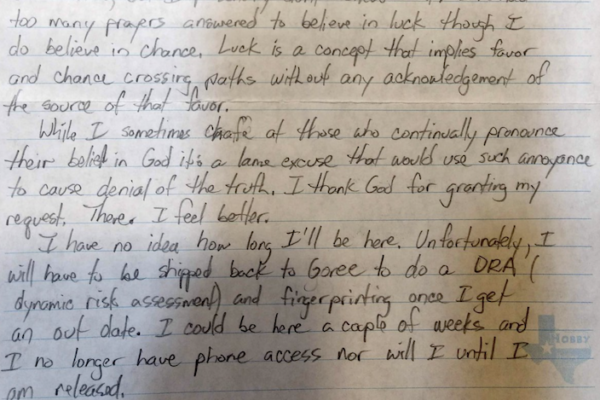 too many prayers answered to believe in luck though I
do believe in chance. Luck is a concept that implies favor
and chance crossing paths without any acknowledgement of
the source of that favor.
While I sometimes chafe at those who continually pronounce
their belief in God it's a lame excuse that would use such annoyance
to cause denial of the truth. I thank God for granting my
request. There. I feel better.
I have no idea how long I'll be here. Unfortunately, I
will have to be shipped back to Goree to do a DRA (
dynamic risk assessment) and fingerprinting once I get
an out date. I could be here a couple of weeks and
I no longer have phone access nor will I until I
am released.
HOBBY